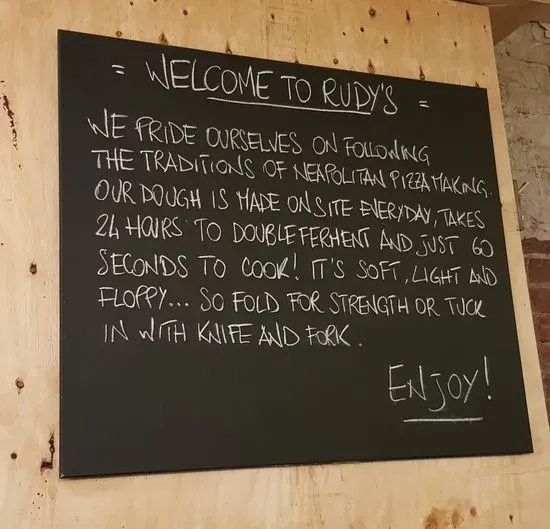 = WELCOME TO RUDY'S =
WE PRIDE OURSELVES ON FOLLOWING
THE TRADITIONS OF NEAPOLITAN PIZZA MAKING.
OUR DOUGH IS MADE ON SITE EVERYDAY, TAKES
24 HOURS TO DOUBLE FERMENT AND JUST 60
SECONDS TO COOK! IT'S SOFT, LIGHT AND
FLOPPY... SO FOLD FOR STRENGTH OR TUCK
IN WITH KNIFE AND FORK.
ENJOY!